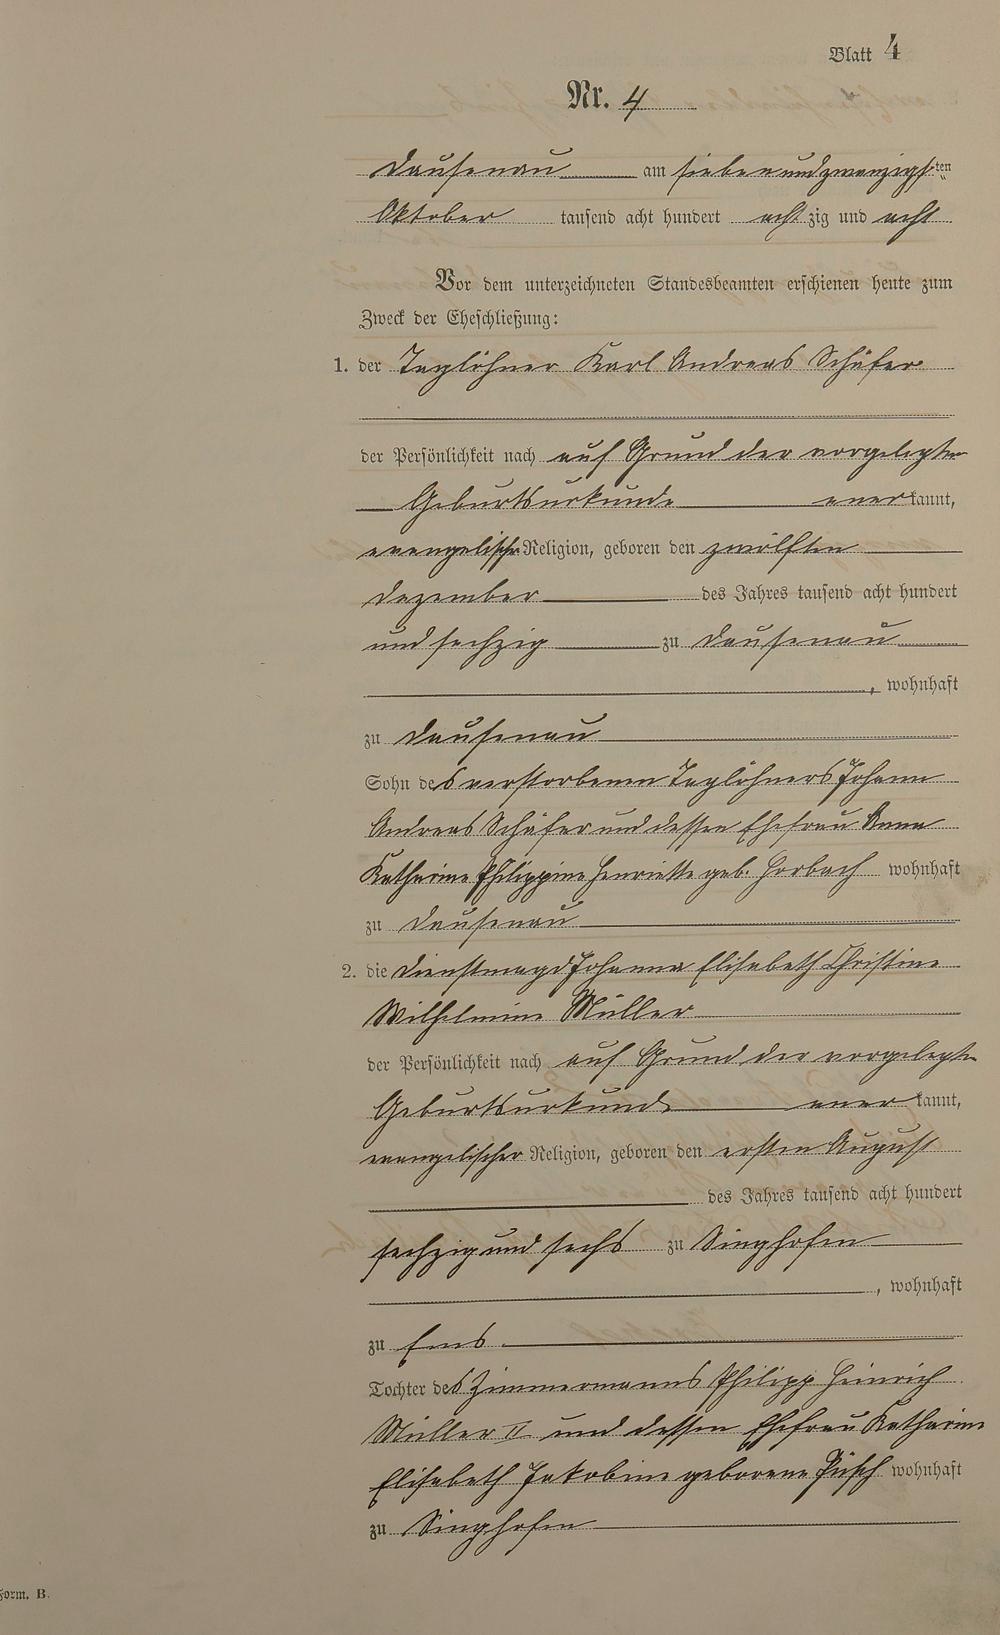 Blatt 4
Nr. 4
Dausenau am siebenundzwanzigsten
Oktober tausend acht hundert achtzig und acht
Vor dem unterzeichneten Standesbeamten erschienen heute zum
Zweck der Eheschließung:
1. der Taglöhner Karl Andreas Schäfer
der Persönlichkeit nach auf Grund der vorgelegten
Geburtsurkunde anerkannt,
evangelischer Religion, geboren den zwölften
Dezember des Jahres tausend acht hundert
und sechzig zu Dausenau
, wohnhaft
zu Dausenau
Sohn des verstorbenen Taglöhners Johann
Andreas Schäfer und dessen Ehefrau Anna
Katharine Philippine Henriette geb. Horbach wohnhaft
zu Dausenau
2. die Dienstmagd Johanna Elisabeth Christine
Wilhelmine Müller
der Persönlichkeit nach auf Grund der vorgelegten
Geburtsurkunde anerkannt,
evangelischer Religion, geboren den ersten August
des Jahres tausend acht hundert
sechzig und sechs zu Singhofen
, wohnhaft
zu Ems
Tochter des Zimmermanns Philipp Heinrich
Müller II und dessen Ehefrau Katharine
Elisabeth Jakobine geborene Püsch wohnhaft
zu Singhofen
Form. B.